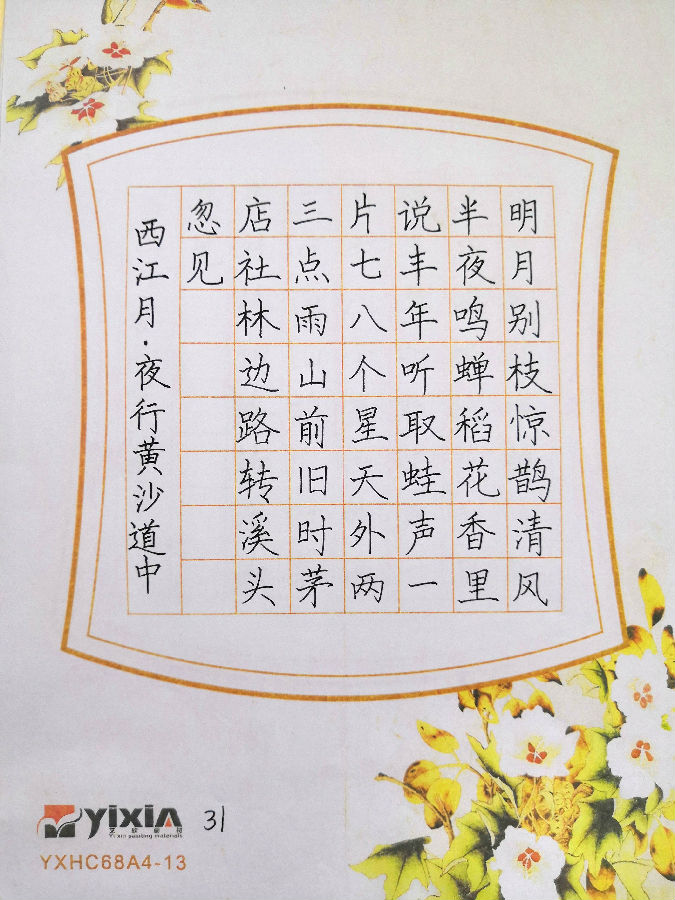 明月别枝惊鹊清风
半夜鸣蝉稻花香里
说丰年听取蛙声一
片七八个星天外两
三点雨山前旧时茅
店社林边路转溪头
忽见
西江月·夜行黄沙道中
yixin
Yi xin painting materials
31
YXHC68A4-13